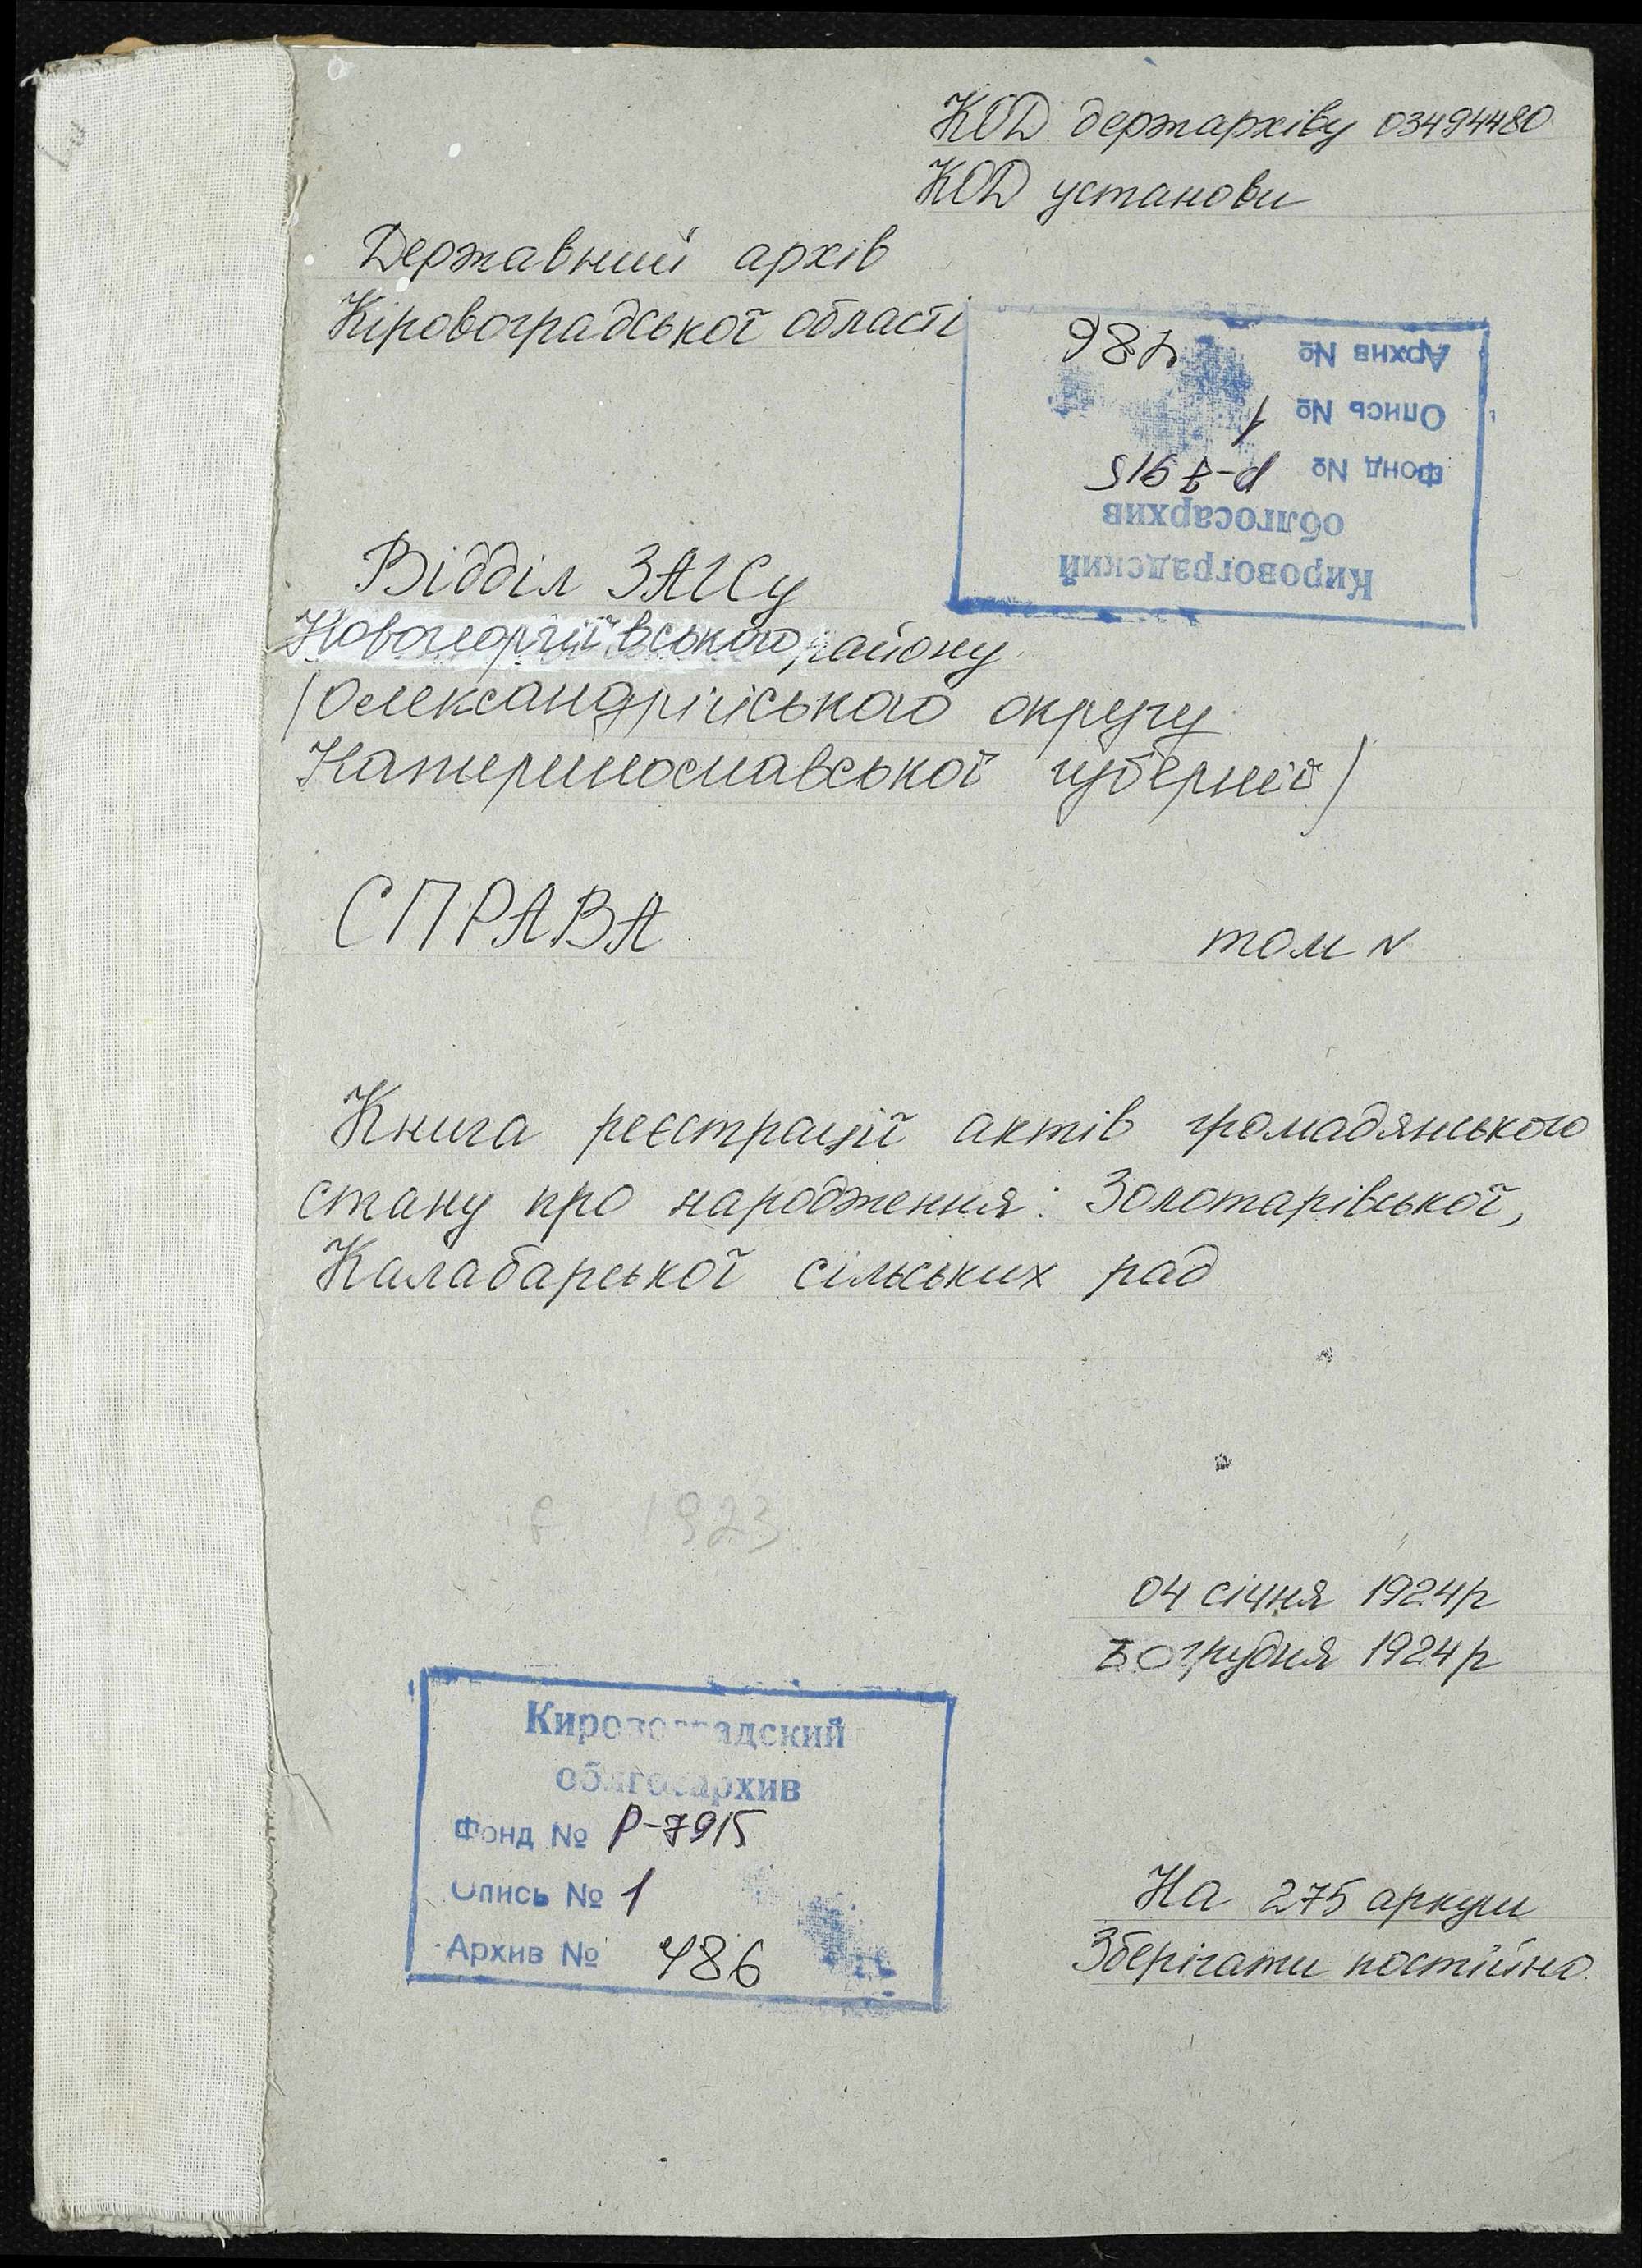 КОД держархіву 03494480
КОД установи
Державний архів
Кіровоградської області
Архив № 486
Опись № 1
Фонд № Р-7915
облгосархив
Кировоградский
Відділ ЗАГСу
Новогеоргіївського району
/Олександрійського округу
Катеринославської губернії/
СПРАВА
том №
Книга реєстрації актів громадянського
стану про народження: Золотарівської,
Калабарської сільських рад
1923
04 січня 1924р
30 грудня 1924р
Кировоградский
облгосархив
Фонд № Р-7915
Опись № 1
Архив № 486
На 275 аркуш
Зберігати постійно